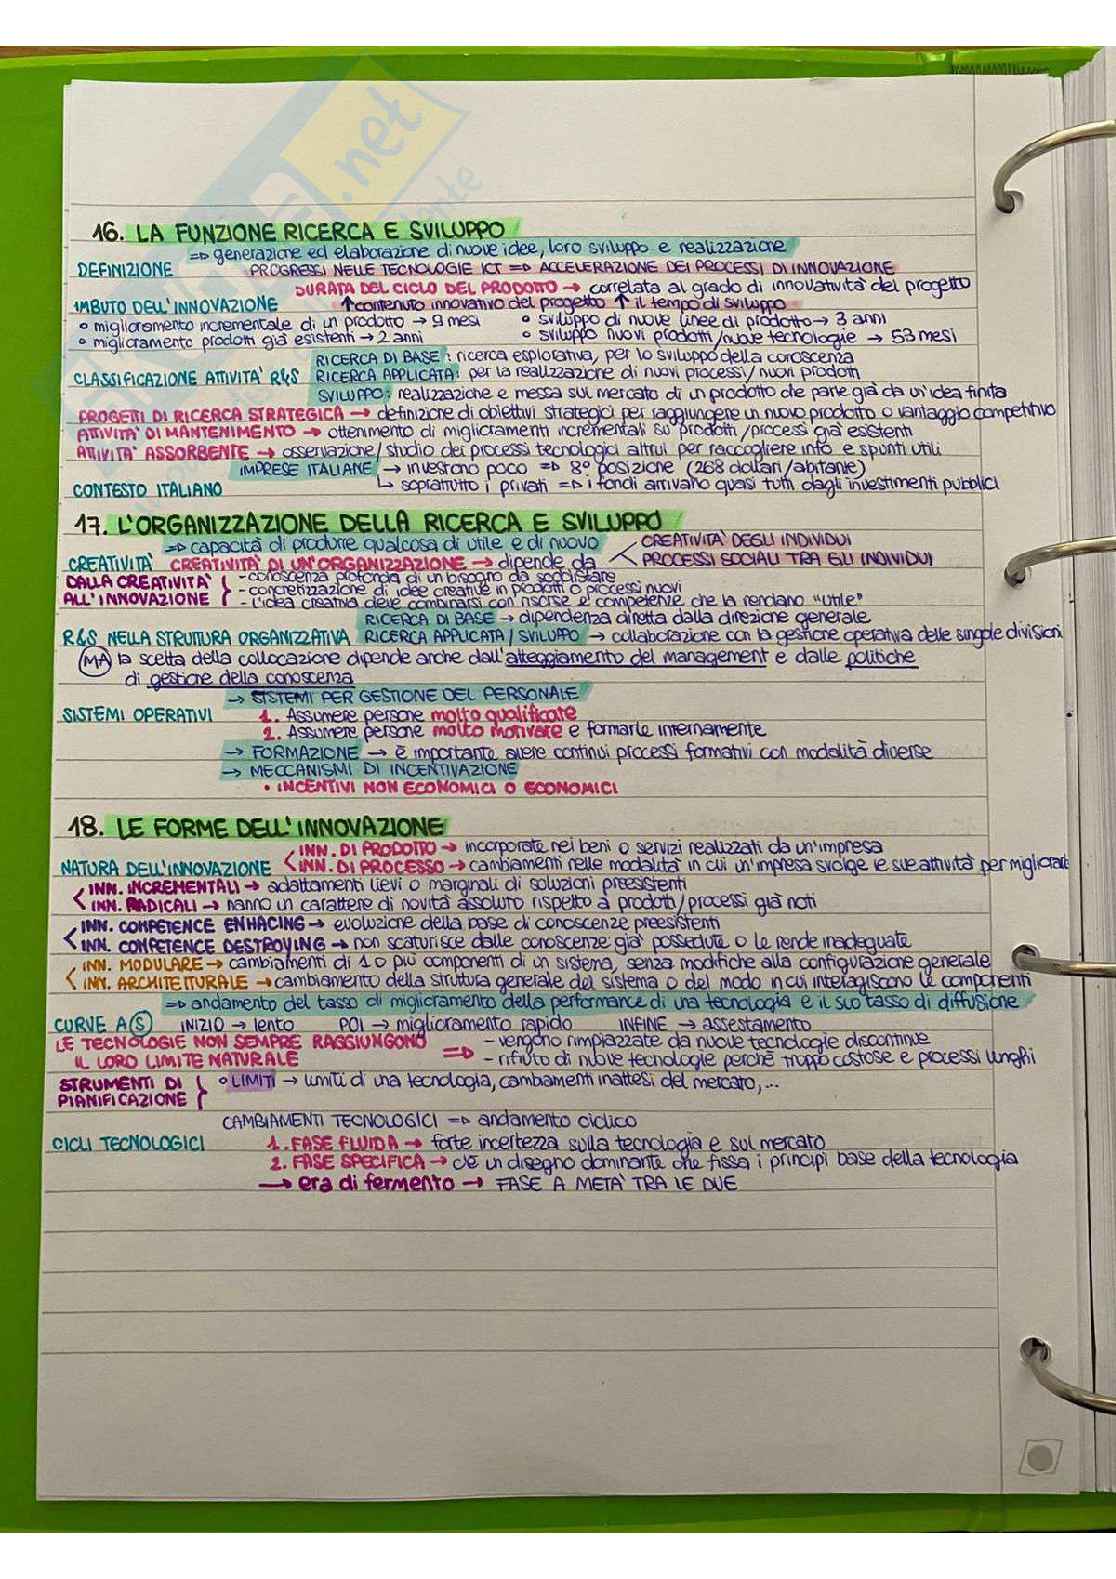 .net
16. LA FUNZIONE RICERCA E SVILUPPO
=> generazione ed elaborazione di nuove idee, loro sviluppo e realizzazione
DEFINIZIONE PROGRESSI NELLE TECNOLOGIE ICT => ACCELERAZIONE DEI PROCESSI DI INNOVAZIONE
DURATA DEL CICLO DEL PRODOTTO → correlata al grado di innovatività del progetto
IMBUTO DELL'INNOVAZIONE ↑ contenuto innovativo del progetto ↑ il tempo di sviluppo
• miglioramento incrementale di un prodotto → 9 mesi • sviluppo di nuove linee di prodotto → 3 anni
• miglioramento prodotti già esistenti → 2 anni • sviluppo nuovi prodotti/nuove tecnologie → 53 mesi
RICERCA DI BASE: ricerca esplorativa, per lo sviluppo della conoscenza
CLASSIFICAZIONE ATTIVITA' R&S RICERCA APPLICATA: per la realizzazione di nuovi processi/nuovi prodotti
SVILUPPO: realizzazione e messa sul mercato di un prodotto che parte già da un'idea finita
PROGETTI DI RICERCA STRATEGICA → definizione di obiettivi strategici per raggiungere un nuovo prodotto o vantaggio competitivo
ATTIVITA' DI MANTENIMENTO → ottenimento di miglioramenti incrementali su prodotti/processi già esistenti
ATTIVITA' ASSORBENTE → osservazione/studio dei processi tecnologici altrui per raccogliere info e spunti utili
IMPRESE ITALIANE → investono poco => 8° posizione (268 dollari/abitante)
CONTESTO ITALIANO ↳ soprattutto i privati => i fondi arrivano quasi tutti dagli investimenti pubblici
17. L'ORGANIZZAZIONE DELLA RICERCA E SVILUPPO
=> capacità di produrre qualcosa di utile e di nuovo CREATIVITA' DEGLI INDIVIDUI
CREATIVITA' CREATIVITA' DI UN'ORGANIZZAZIONE → dipende da < PROCESSI SOCIALI TRA GLI INDIVIDUI
DALLA CREATIVITA' ALL'INNOVAZIONE { - conoscenza profonda di un bisogno da soddisfare
- concretizzazione di idee creative in prodotti o processi nuovi
- l'idea creativa deve combinarsi con risorse e competenze che la rendano "utile"
RICERCA DI BASE → dipendenza diretta dalla direzione generale
R&S NELLA STRUTTURA ORGANIZZATIVA RICERCA APPLICATA/SVILUPPO → collaborazione con la gestione operativa delle singole divisioni
MA la scelta della collocazione dipende anche dall'atteggiamento del management e dalle politiche
di gestione della conoscenza
→ SISTEMI PER GESTIONE DEL PERSONALE
SISTEMI OPERATIVI 1. Assumere persone molto qualificate
2. Assumere persone molto motivate e formarle internamente
→ FORMAZIONE → è importante avere continui processi formativi con modalità diverse
→ MECCANISMI DI INCENTIVAZIONE
• INCENTIVI NON ECONOMICI O ECONOMICI
18. LE FORME DELL'INNOVAZIONE
INN. DI PRODOTTO → incorporate nei beni o servizi realizzati da un'impresa
NATURA DELL'INNOVAZIONE < INN. DI PROCESSO → cambiamenti nelle modalità in cui un'impresa svolge le sue attività per migliorarle
< INN. INCREMENTALI → adattamenti lievi o marginali di soluzioni preesistenti
INN. RADICALI → hanno un carattere di novità assoluto rispetto a prodotti/processi già noti
< INN. COMPETENCE ENHACING → evoluzione della base di conoscenze preesistenti
INN. COMPETENCE DESTROYING → non scaturisce dalle conoscenze già possedute o le rende inadeguate
< INN. MODULARE → cambiamenti di 1 o più componenti di un sistema, senza modifiche alla configurazione generale
INN. ARCHITETTURALE → cambiamento della struttura generale del sistema o del modo in cui interagiscono le componenti
=> andamento del tasso di miglioramento della performance di una tecnologia e il suo tasso di diffusione
CURVE A S INIZIO → lento POI → miglioramento rapido INFINE → assestamento
LE TECNOLOGIE NON SEMPRE RAGGIUNGONO - vengono rimpiazzate da nuove tecnologie discontinue
IL LORO LIMITE NATURALE => - rifiuto di nuove tecnologie perchè troppo costose e processi lunghi
STRUMENTI DI PIANIFICAZIONE { • LIMITI → limiti di una tecnologia, cambiamenti inattesi del mercato,...
CAMBIAMENTI TECNOLOGICI => andamento ciclico
CICLI TECNOLOGICI 1. FASE FLUIDA → forte incertezza sulla tecnologia e sul mercato
2. FASE SPECIFICA → c'è un disegno dominante che fissa i principi base della tecnologia
→ era di fermento → FASE A META' TRA LE DUE